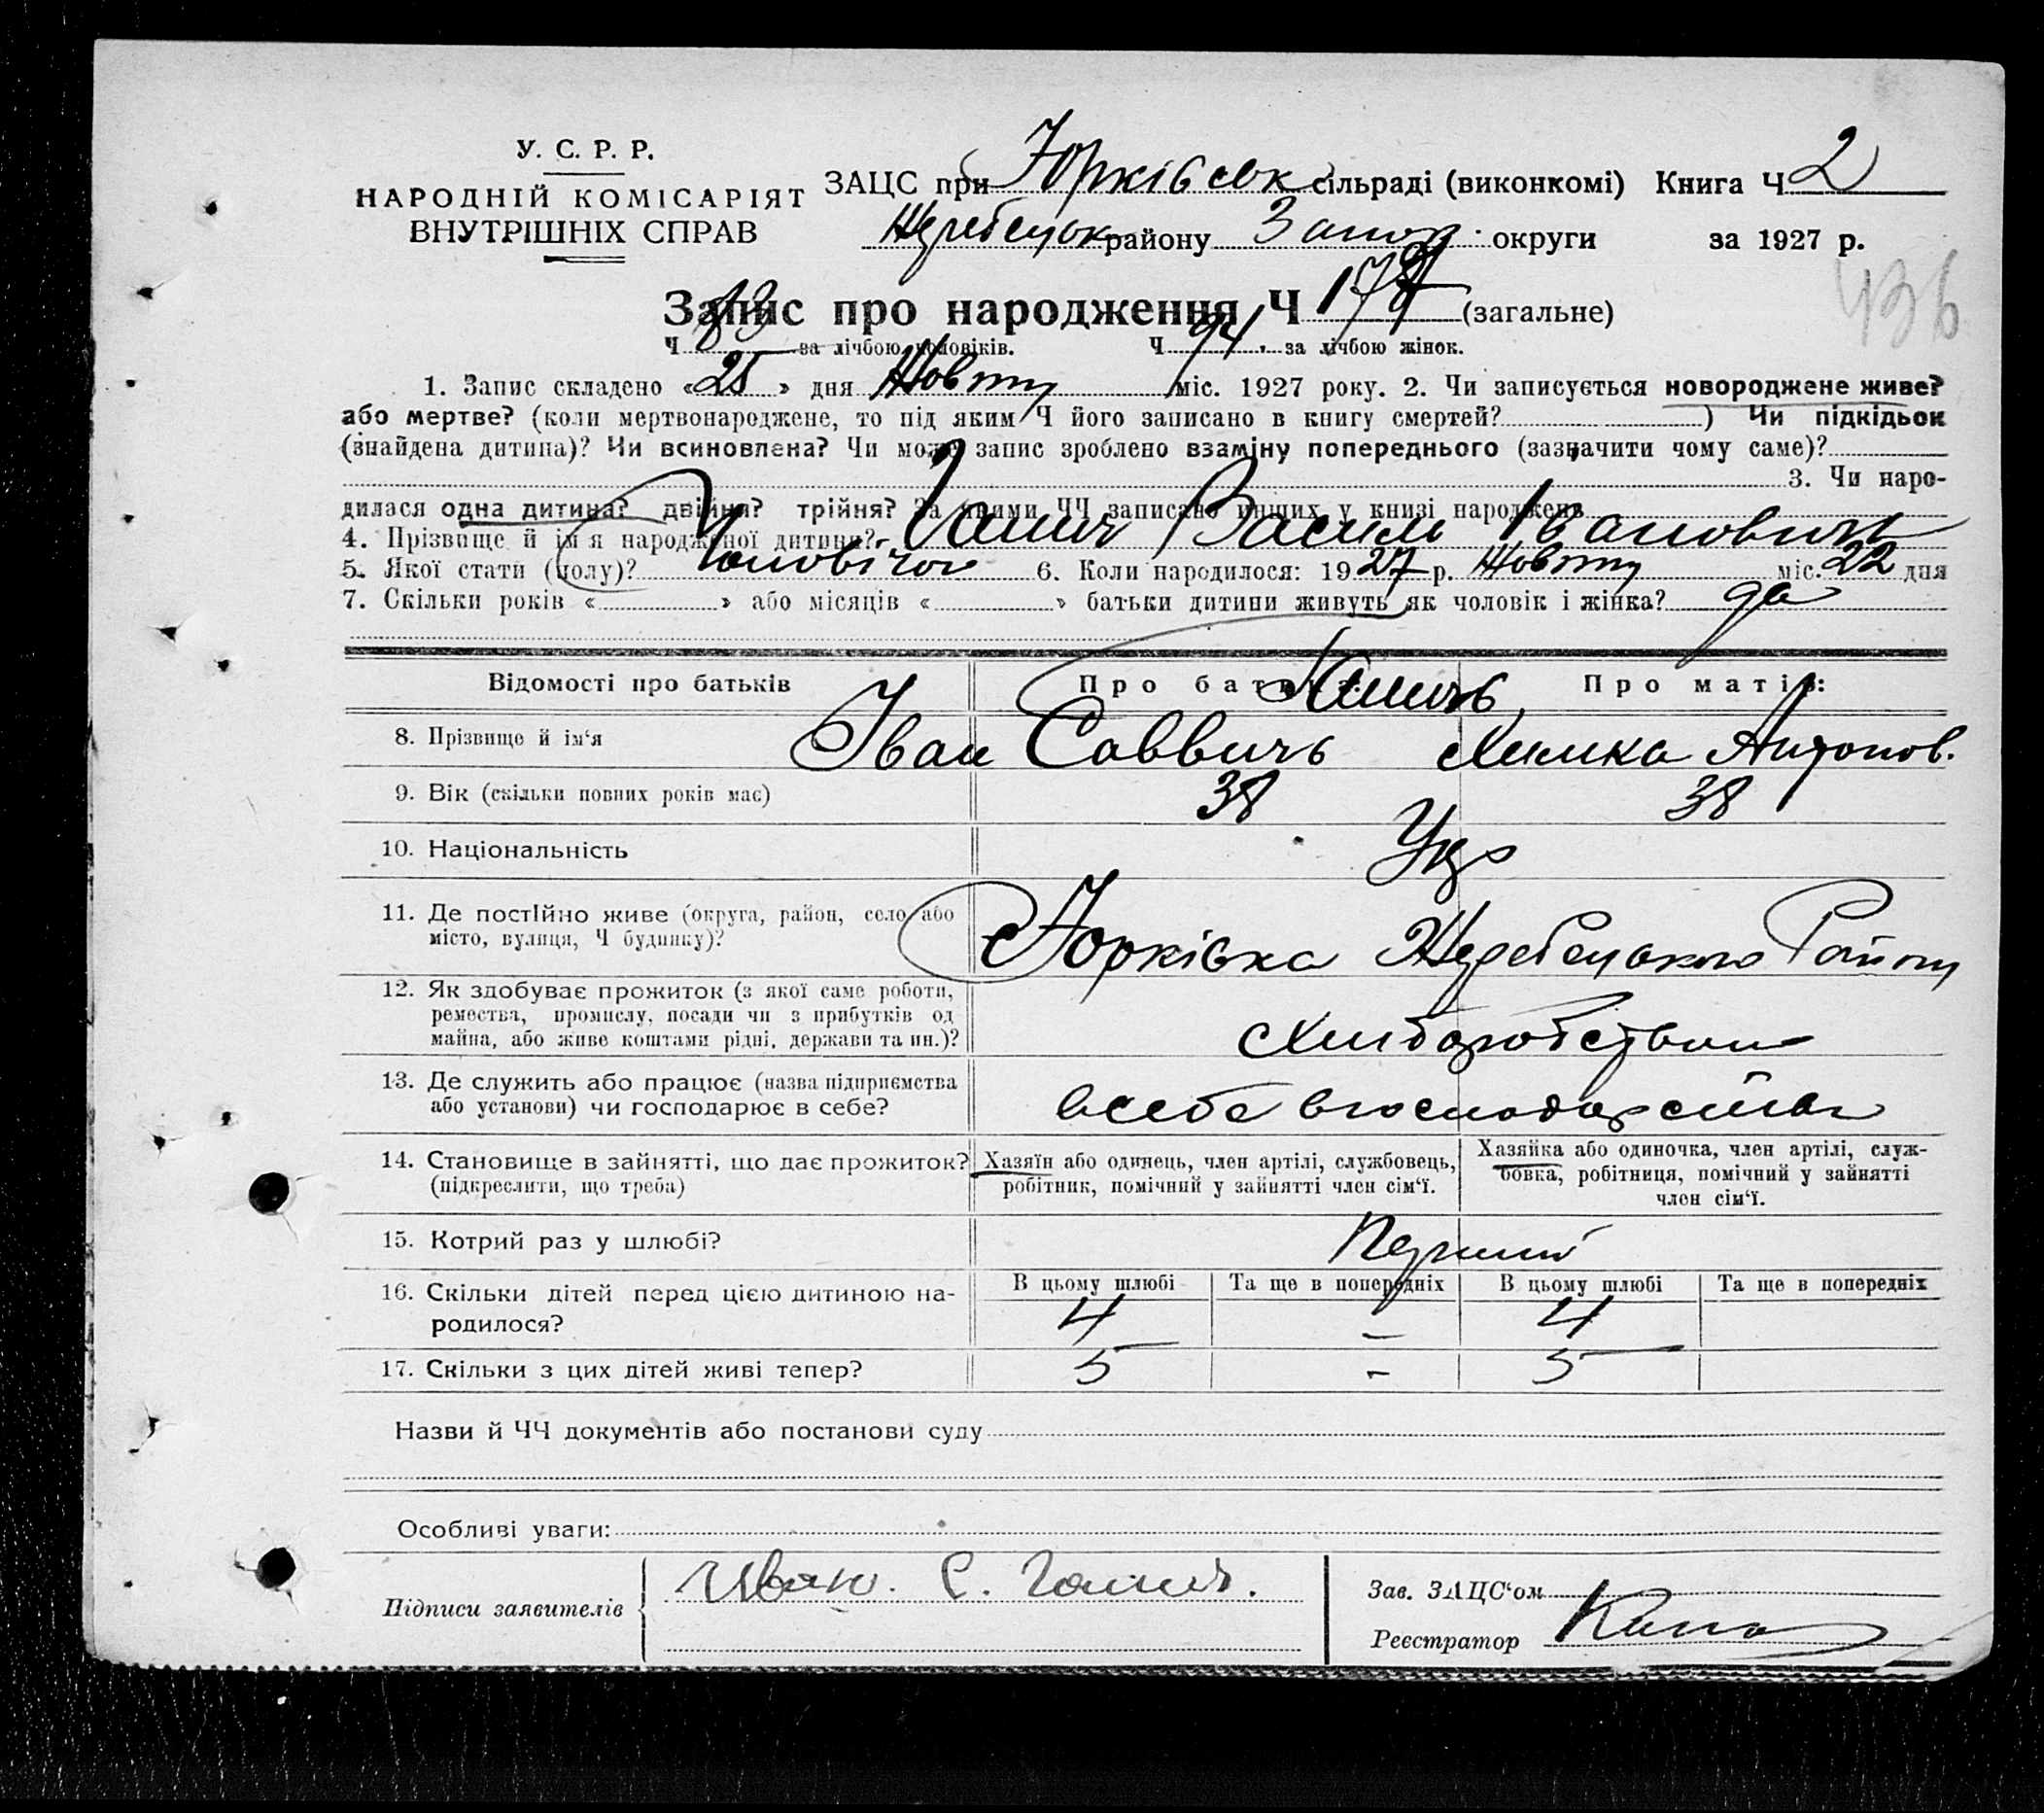 У. С. Р. Р.
НАРОДНІЙ КОМІСАРІЯТ
ВНУТРІШНІХ СПРАВ
ЗАЦС при Юрківськ сільраді (виконкомі) Книга Ч 2
Жеребецьк району Запор. округи за 1927 р.
436
Запис про народження Ч 177 (загальне)
Ч 83 за лічбою чоловіків. Ч 94. за лічбою жінок.
1. Запис складено «25» дня Жовтн міс. 1927 року. 2. Чи записується новороджене живе?
або мертве? (коли мертвонароджене, то під яким Ч його записано в книгу смертей? ) Чи підкідьок
(знайдена дитина)? Чи всиновлена? Чи може запис зроблено взаміну попереднього (зазначити чому саме)?
3. Чи наро-
дилася одна дитина? двійня? трійня? За якими ЧЧ записано инших у книзі народжень
4. Прізвище й ім'я народженої дитини? Василь Івановичь
5. Якої стати (полу)? Чоловічої 6. Коли народилося: 1927 р. Жовтн міс. 22 дня
7. Скільки років « » або місяців « » батьки дитини живуть як чоловік і жінка? да
Відомості про батьків Про батька: Про матір:
8. Прізвище й ім'я Іван Саввичь Антонов.
9. Вік (скільки повних років має) 38 38
10. Національність Укр
11. Де постІйно живе (округа, район, село або
місто, вулиця, Ч будинку)? Юрківка Жеребецького Району
12. Як здобуває прожиток (з якої саме роботи,
ремества, промислу, посади чи з прибутків од
майна, або живе коштами рідні, держави та ин.)? Хлиборобством
13. Де служить або працює (назва підприємства
або установи) чи господарює в себе? всебе вгосподарстві
14. Становище в зайнятті, що дає прожиток?
(підкреслити, що треба)
Хазяїн або одинець, член артілі, службовець,
робітник, помічний у зайнятті член сім'ї.
Хазяйка або одиночка, член артілі, служ-
бовка, робітниця, помічний у зайнятті
член сім'ї.
15. Котрий раз у шлюбі? Перший
В цьому шлюбі Та ще в попередніх В цьому шлюбі Та ще в попередніх
16. Скільки дітей перед цією дитиною на-
родилося? 4 – 4
17. Скільки з цих дітей живі тепер? 5 – 5
Назви й ЧЧ документів або постанови суду
Особливі уваги:
Підписи заявителів Иван. С.
Зав. ЗАЦС'ом
Реєстратор